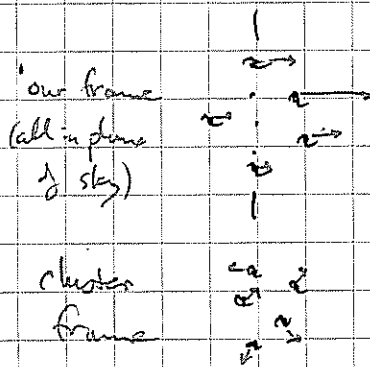 'our frame
(all in plane
of sky)
cluster
frame